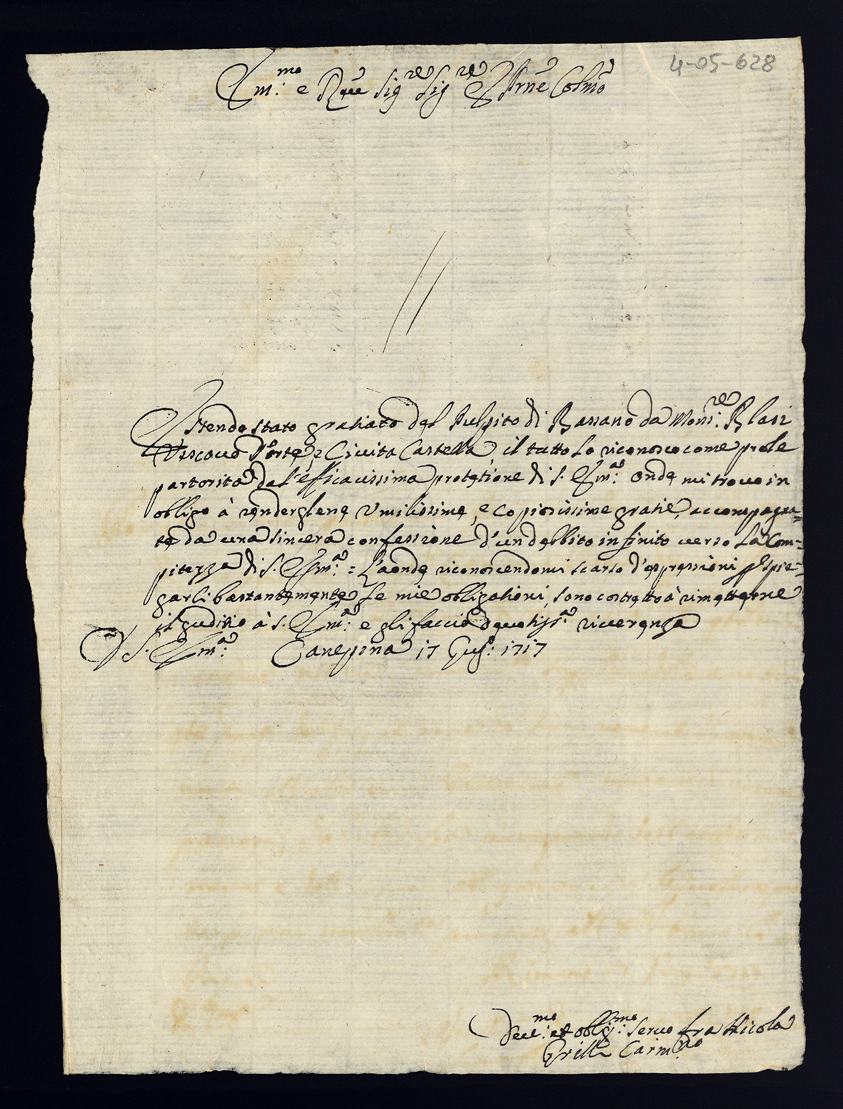 4-05-628
Em:mo e R Sig.re Sig.re e Prne Colmo
Essendo stato gratiato del Pulpito di Bassano da Monsi.re Blasi
Vescovo d'Orte, e Civita Castella, il tutto lo riconosco come prole
partorita dal'efficacissima protetione di S. Em:a onde mi trovo in
obligo à renderglene umilissime, e copiosissime gratie, accompagna=
te da una sincera confessione d'un debbito infinito verso La Com=
pitezza di S. Em:a = Laonde riconoscendomi scarso d'espressioni p espie=
garli bastantemente Le mie obligationi, sono costretto à rimetterne
il giudizio à S. Em:a e gli faccio riverenza
V. S. Em:a Canepina 17 1717
et oblig:mo Servo fra Nicola
Grilli Carm:no